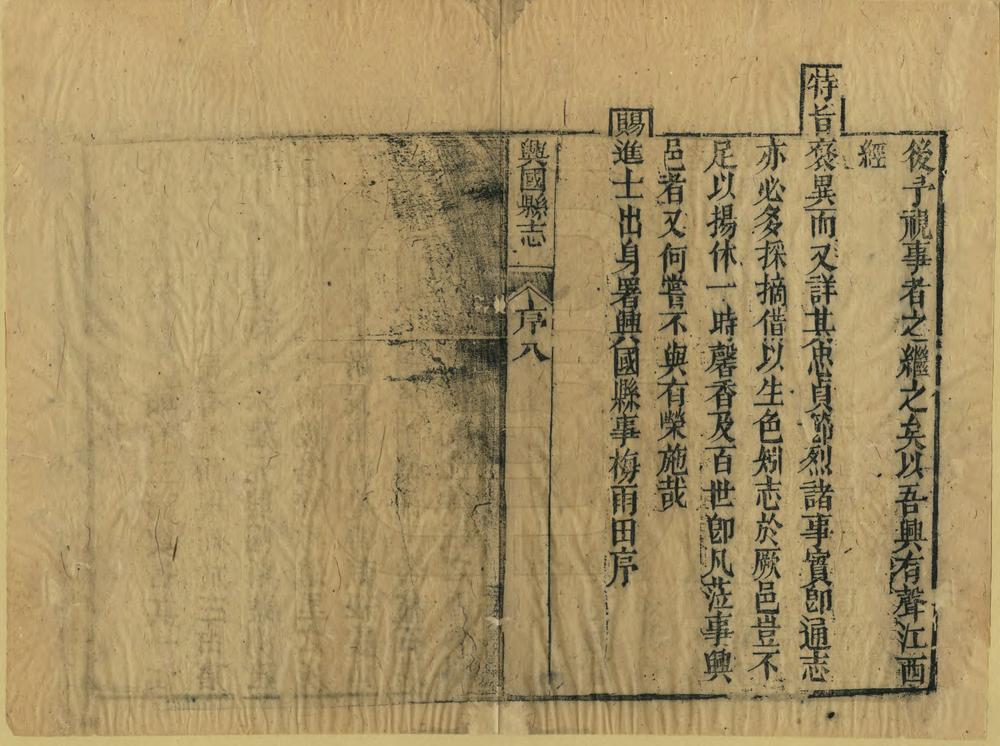 後予視事者之繼之矣以吾興有聲江西
經
特旨褒異而又詳其忠貞節烈諸事實卽通志
亦必多採摘借以生色矧志於厥邑豈不
足以揚休一時馨香及百世卽凡蒞事興
邑者又何嘗不與有榮施哉
賜進士出身署興國縣事梅雨田序
興國縣志
序
八